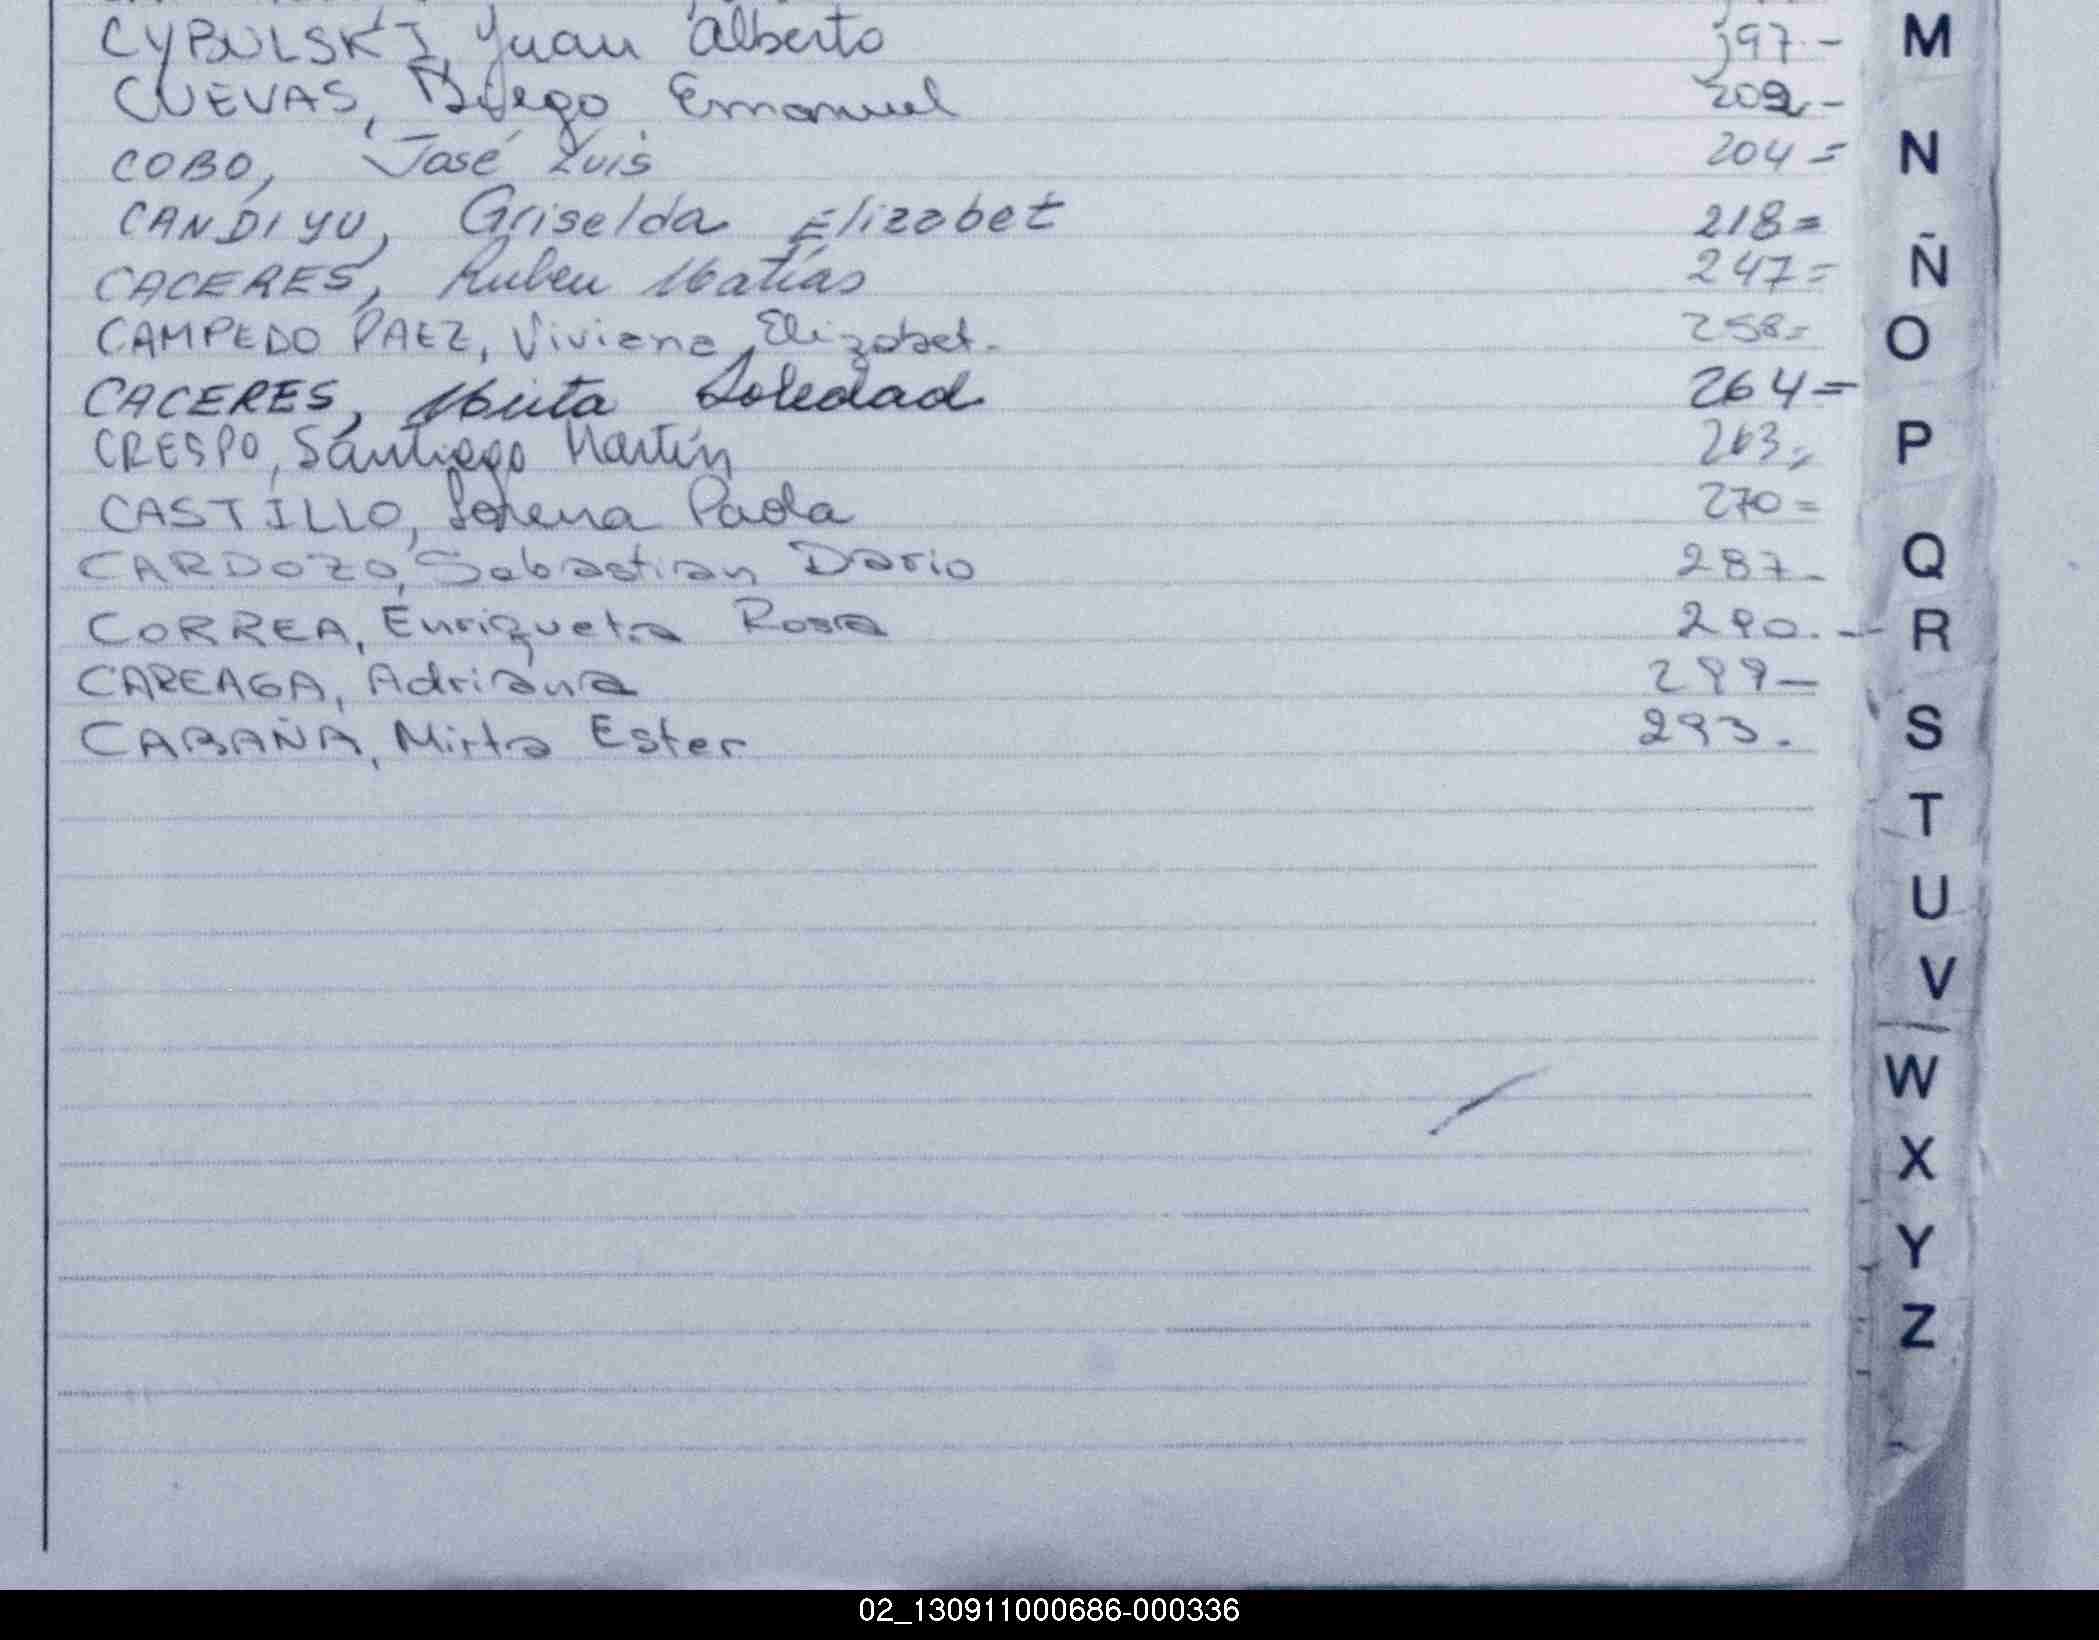 CYBULSKI, Juan Alberto 197.-
CUEVAS, Diego Emanuel 202.-
COBO, José Luis 204=
CANDIYU, Griselda Elizabet 218=
CACERES, Ruben Matías 247=
CAMPEDO PAEZ, Viviana Elizabet. 258=
CACERES, Mirta Soledad 264=
CRESPO, Santiago Martín 263=
CASTILLO, Lorena Paola 270=
CARDOZO, Sebastian Dario 287-
CORREA, Enriqueta Rosa 290.-
CAREAGA, Adriana 299-
CABAÑA, Mirta Ester 293.
M
N
Ñ
O
P
Q
R
S
T
U
V
W
X
Y
Z
02_130911000686-000336